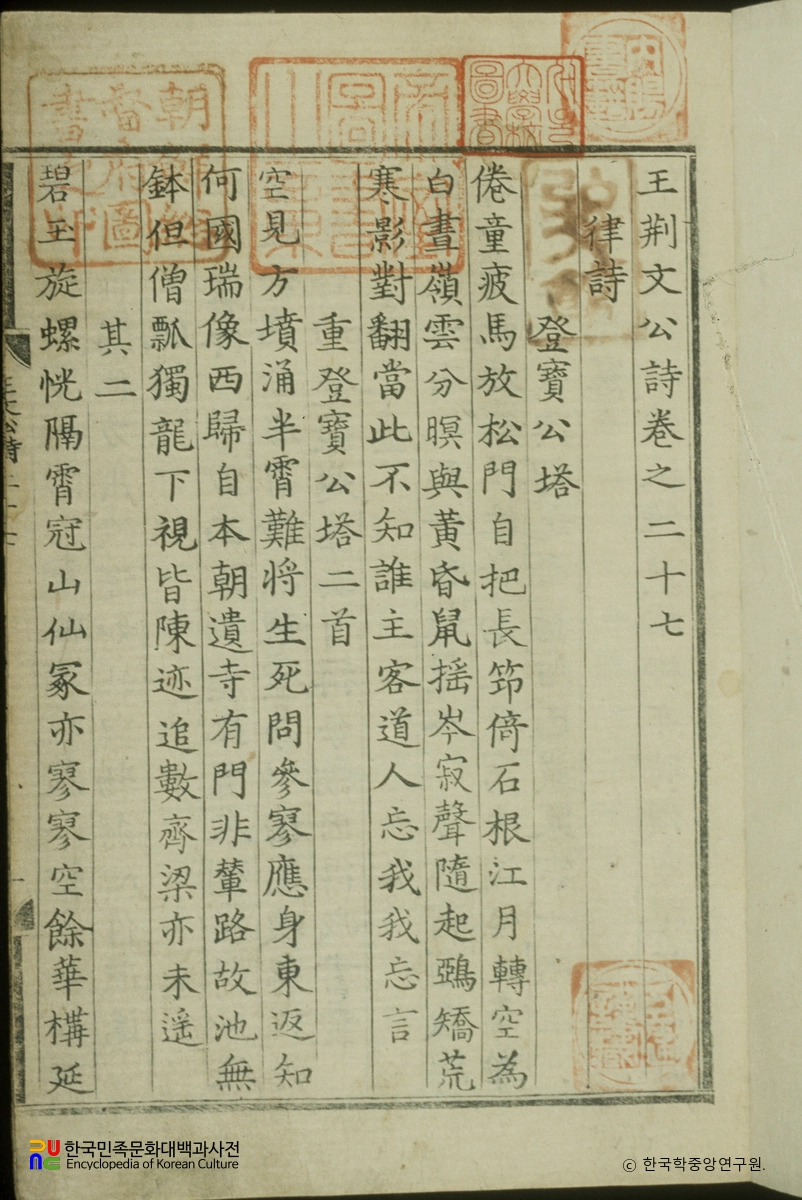 王荆文公詩卷之二十七
律詩
登寶公塔
倦童疲馬放松門自把長筇倚石根江月轉空為
白晝嶺雲分暝與黃昏鼠搖岑寂聲隨起鵶矯荒
寒影對翻當此不知誰主客道人忘我我忘言
重登寶公塔二首
空見方墳涌半霄難將生死問參寥應身東返知
何國瑞像西歸自本朝遺寺有門非輦路故池無
鉢但僧瓢獨龍下視皆陳迹追數齊梁亦未遥
其二
碧玉旋螺恍隔霄冠山仙冢亦寥寥空餘華構延
한국민족문화대백과사전
Encyclopedia of Korean Culture
ⓒ 한국학중앙연구원.